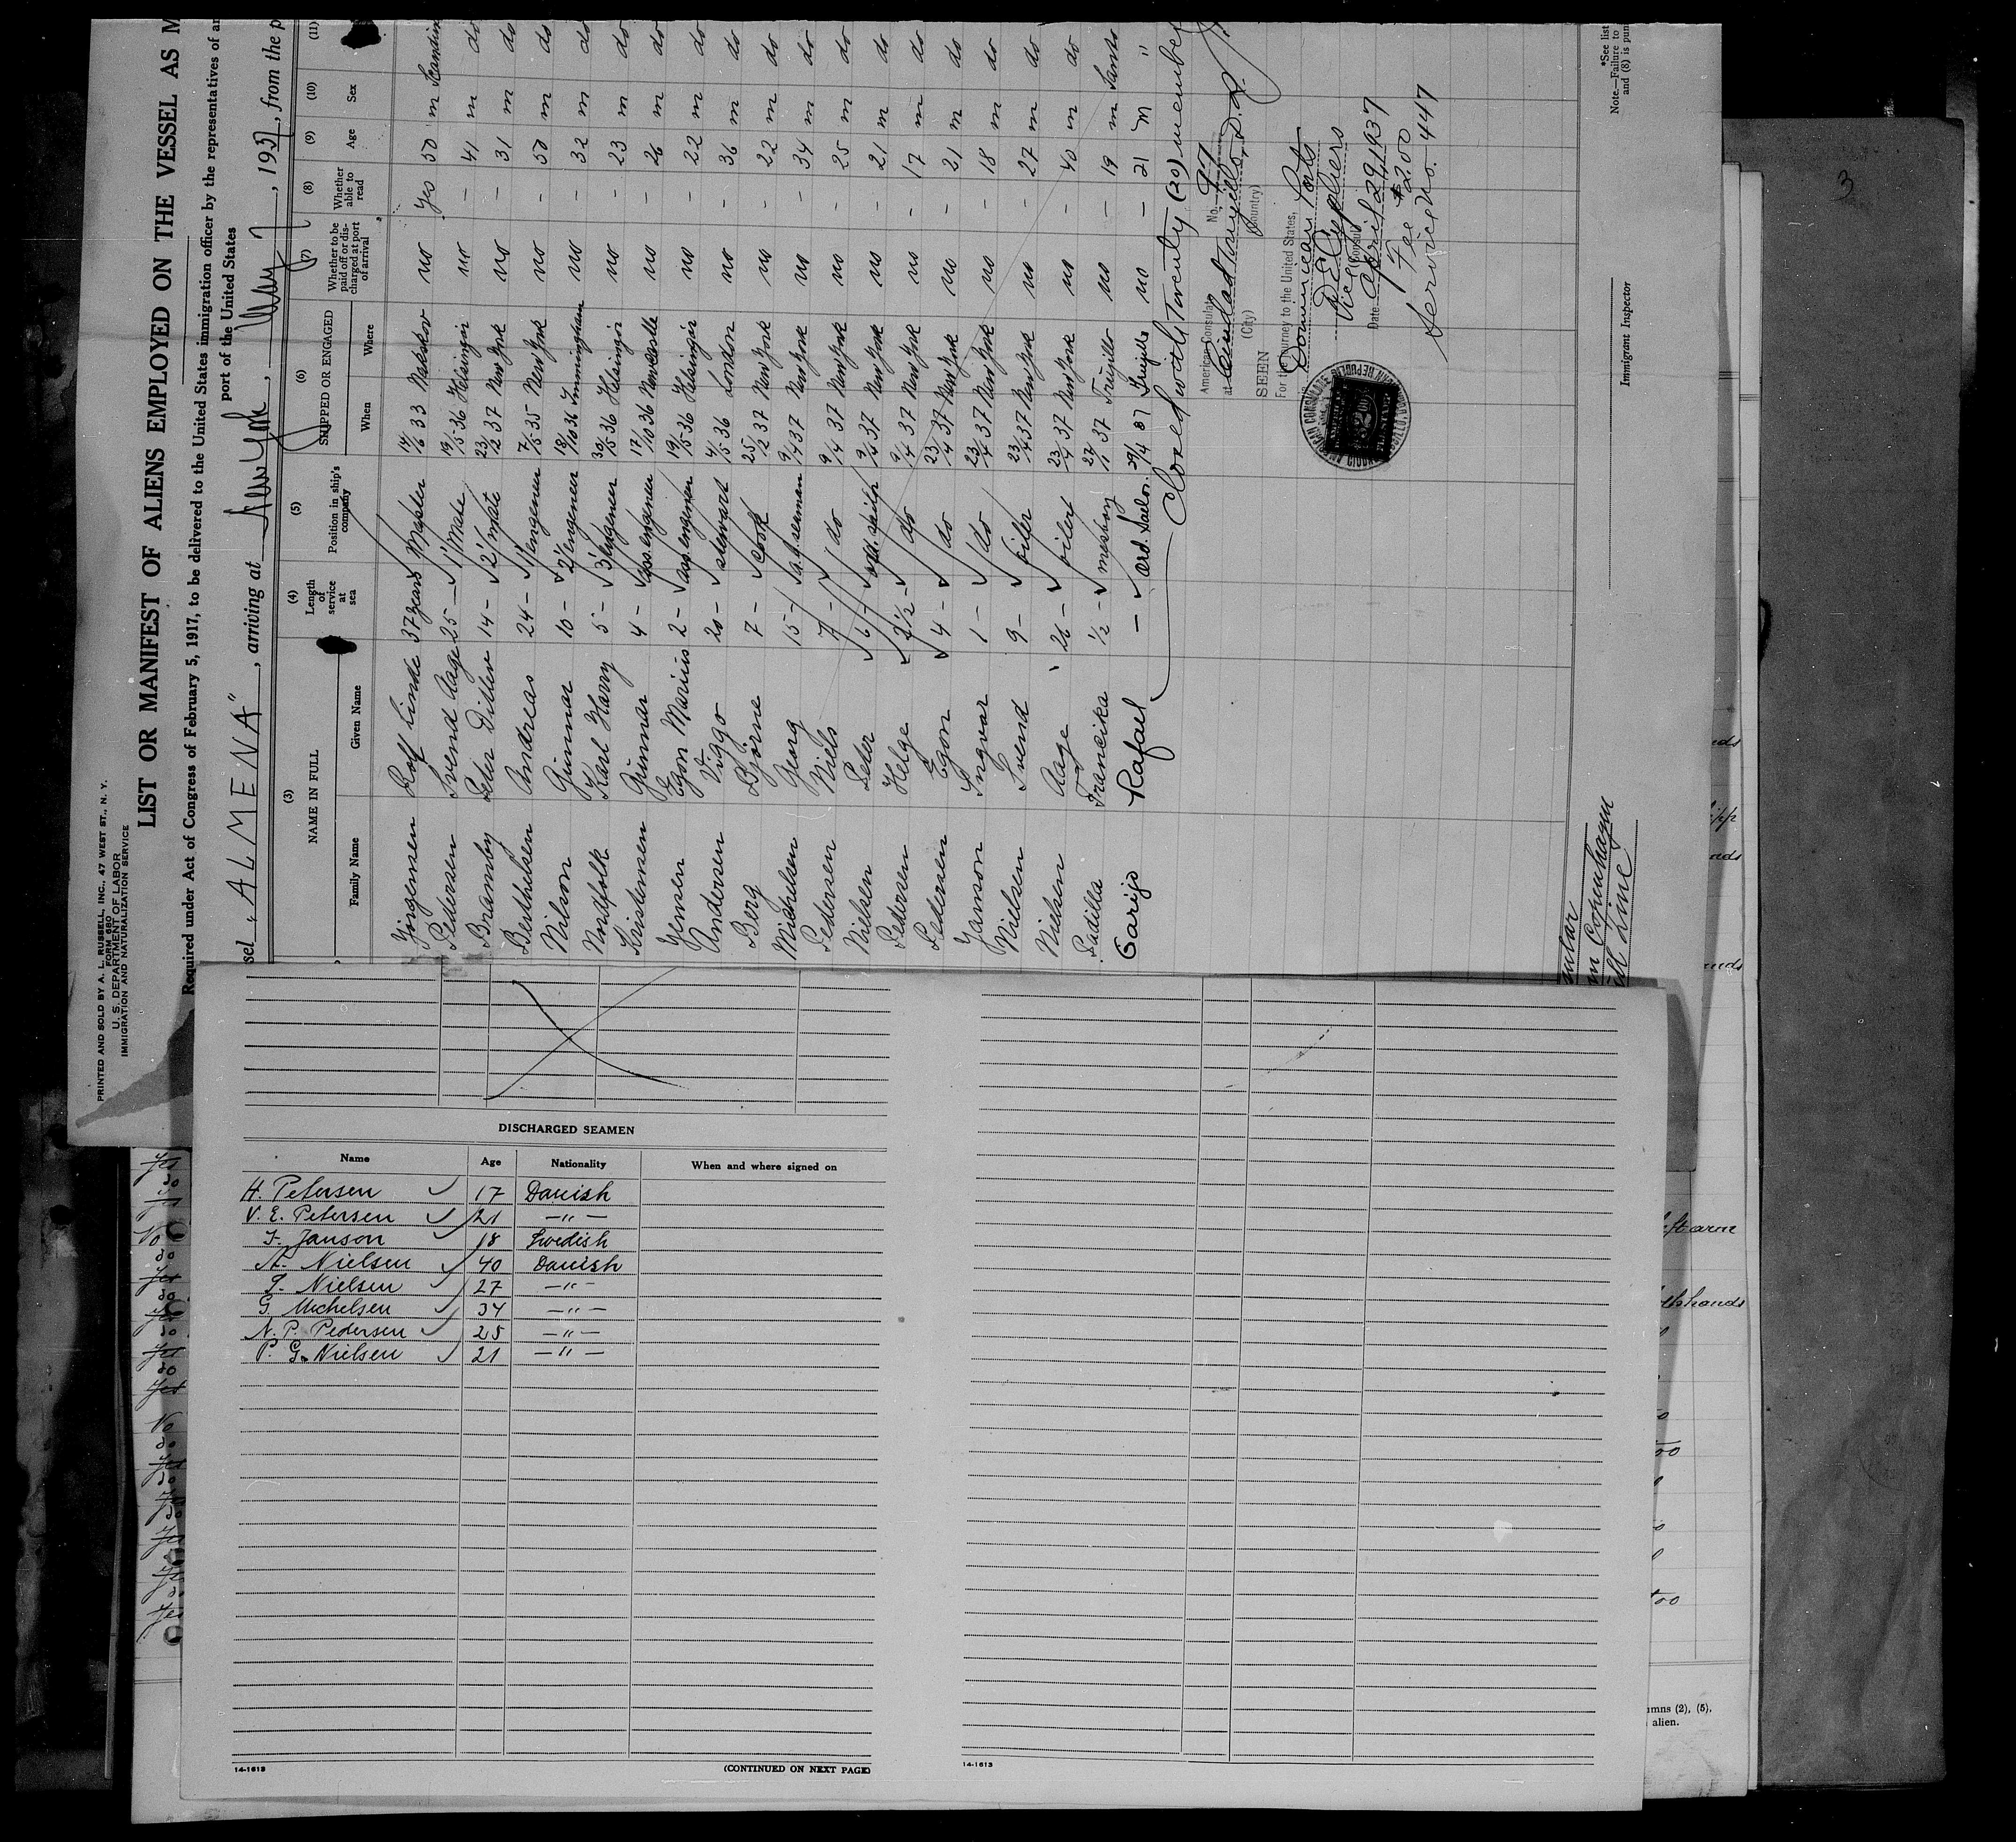 PRINTED AND SOLD BY A. L. RUSSELL, INC., 47 WEST ST., N. Y.
FORM 680
U. S. DEPARTMENT OF LABOR
IMMIGRATION AND NATURALIZATION SERVICE
LIST OR MANIFEST OF ALIENS EMPLOYED ON THE VESSEL AS M
Required under Act of Congress of February 5, 1917, to be delivered to the United States immigration officer by the representatives of an
port of the United States
sel "ALMENA", arriving at New York, May 7, 1937, from the p
(3) (4) (5) (6) (7) (8) (9) (10) (11)
NAME IN FULL
Family Name Given Name
Length of service at sea
Position in ship's company
SHIPPED OR ENGAGED
When Where
Whether to be paid off or discharged at port of arrival
Whether able to read
Age Sex
Jörgensen Rolf Linde 37 years Master 14/6 33 Nakskov no yes 50 m Scandin
Pedersen Svend Aage 25 - 1' Mate 19/5 36 Helsingör no - 41 m do
Bramby Peter Ditlev 14 - 2' mate 23/12 37 New York no - 31 m do
Berthelsen Andreas 24 - 1' engeneer 7/5 35 New York no - 50 m do
Nilson Gunnar 10 - 2' engeneer 18/10 36 Immingham no - 32 m do
Nordfolk Karl Harry 5 - 3' engeneer 30/5 36 Helsingör no - 23 m do
Kristensen Gunnar 4 - ass. engeneer 17/10 36 Newcastle no - 26 m do
Jensen Egon Marius 2 - ass. engeneer 19/5 36 Helsingör no - 22 m do
Andersen Viggo 20 - stewart 4/5 36 London no - 36 m do
Berg Björne 7 - cook 25/2 37 New York no - 22 m do
Michelsen Georg 15 - a.b. seaman 9/4 37 New York no - 34 m do
Pedersen Niels 7 - do 9/4 37 New York no - 25 m do
Nielsen Peter 6 - 9/4 37 New York no - 21 m do
Pedersen Helge 2 1/2 - do 9/4 37 New York no - 17 m do
Pedersen Egon 4 - do 23/4 37 New York no - 21 m do
Janson Ingvar 1 - do 23/4 37 New York no - 18 m do
Nielsen Svend 9 - oiler 23/4 37 New York no - 27 m do
Nielsen Aage 26 - oiler 23/4 37 New York no - 40 m do
Padilla Francika 1/2 - messboy 27/11 37 Trujillo no - 19 m Santo
Garijo Rafael - ord. Sailor 29/4 37 Trujillo no - 21 M "
Closed with Twenty (20) member
American Consulate No. 97
at Ciudad Trujillo, D.R.
(City) (Country)
SEEN
For the journey to the United States,
Dominican Ports
Vice Consul
Date April 29, 1937
Fee $2.00
Service No. 447
Immigrant Inspector
*See list
Note.—Failure to
and (8) is pun
in Copenhagen
Line
DISCHARGED SEAMEN
Name Age Nationality When and where signed on
H. Petersen 17 Danish
V. E. Petersen 21 -"-
I. Janson 18 Swedish
A. Nielsen 40 Danish
S. Nielsen 27 -"-
G. Michelsen 34 -"-
N. P. Pedersen 25 -"-
P. G. Nielsen 21 -"-
14-1613 (CONTINUED ON NEXT PAGE)
14-1613
left arm
hands
umns (2), (5),
alien.
3